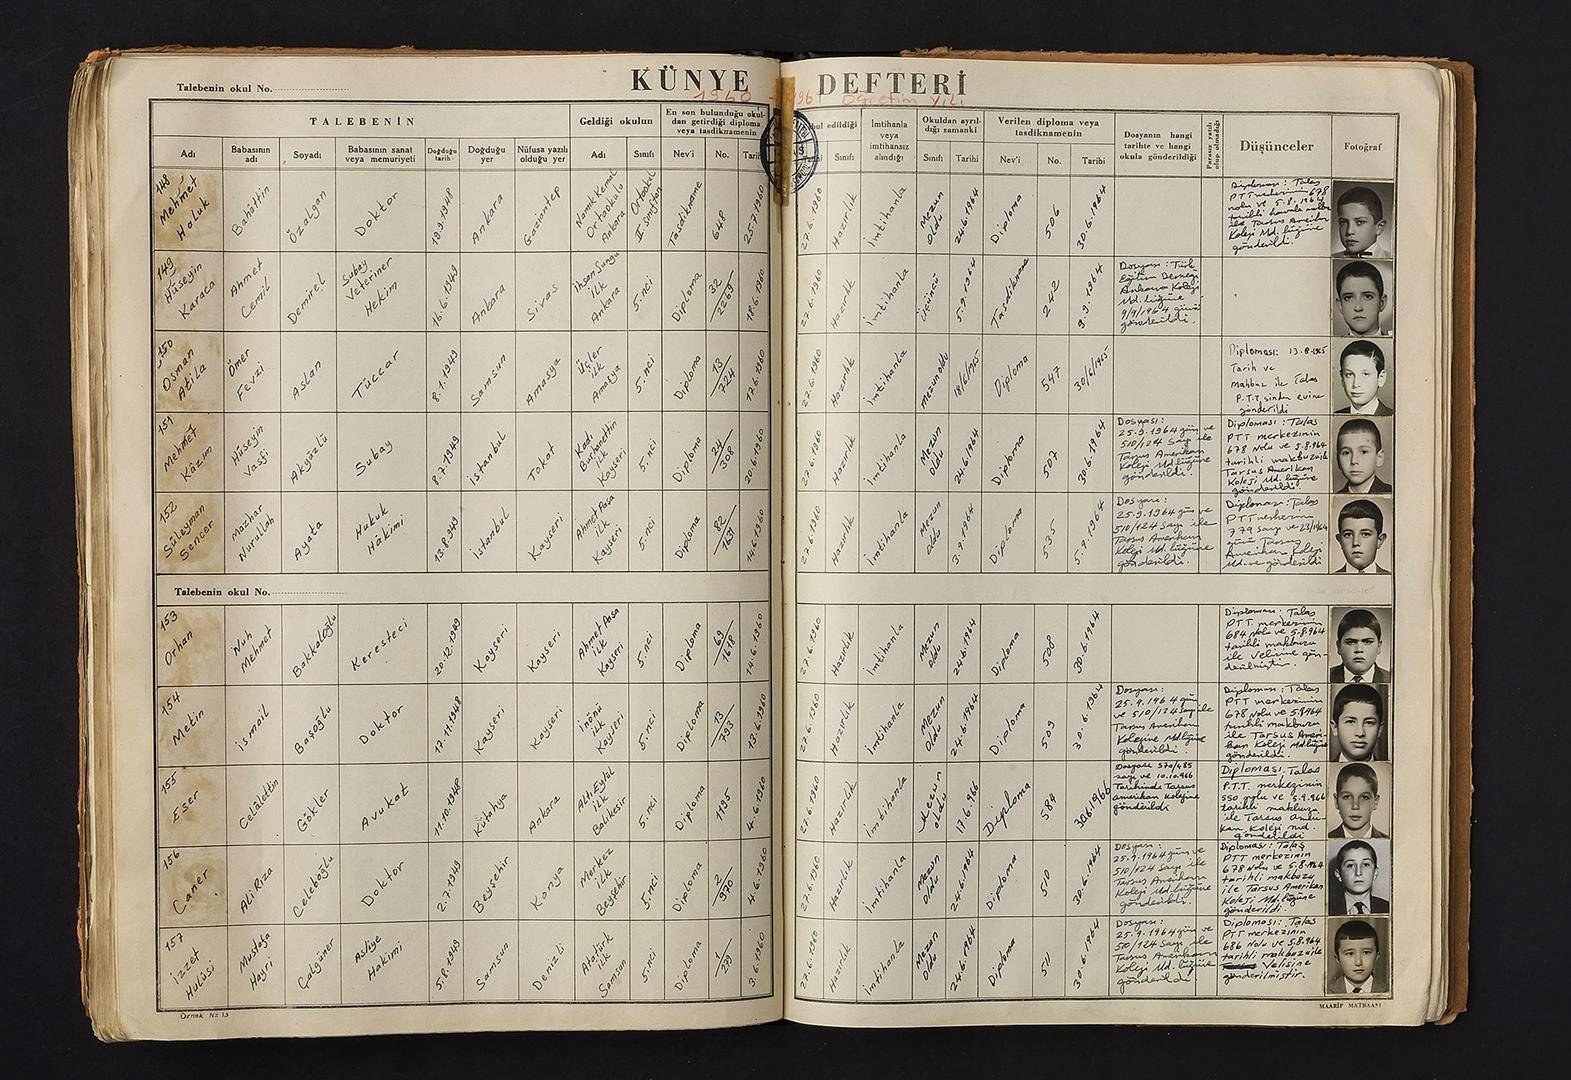 KÜNYE DEFTERİ
1960 - 1961 Öğretim Yılı
Talebenin okul No.
TALEBENİN
Geldiği okulun
En son bulunduğu okul-
dan getirdiği diploma
veya tasdiknamenin
Adı
Babasının
adı
Soyadı
Babasının sanat
veya memuriyeti
Doğduğu
tarih
Doğduğu
yer
Nüfusa yazılı
olduğu yer
Adı
Sınıfı
Nev'i
No.
Tarihi
edildiği
Sınıfı
İmtihanla
veya
imtihansız
alındığı
Okuldan ayrıl-
dığı zamanki
Sınıfı
Tarihi
Verilen diploma veya
tasdiknamenin
Nev'i
No.
Tarihi
Dosyanın hangi
tarihte ve hangi
okula gönderildiği
Parasız yatılı
olup olmadığı
Düşünceler
Fotoğraf
148
Mehmet
Haluk
Bahâttin
Özalgan
Doktor
19.9.1948
Ankara
Gaziantep
Namık Kemal
Ortaokulu
Ankara
Ortaokul
II. Sınıftan
Tasdikname
648
25.7.1960
27.6.1960
Hazırlık
İmtihanla
Mezun
Oldu
24.6.1964
Diploma
506
30.6.1964
Diploması: Talas
PTT 678
nolu ve 5.8.1964
tarihli
ile Tarsus Amerikan
Koleji Md.lüğüne
gönderildi.
149
Hüseyin
Karaca
Ahmet
Cemil
Demirel
Subay
Veteriner
Hekim
16.6.1949
Ankara
Sivas
İhsan Sungu
ilk
Ankara
5.nci
Diploma
32
2269
18.6.1960
27.6.1960
Hazırlık
İmtihanla
Üçüncü
5.9.1964
Tasdikname
242
9.9.1964
Dosyası: Türk
Eğitim Derneği
Ankara Koleji
Md.lüğüne
9/9/1964 günü
gönderildi.
150
Osman
Atila
Ömer
Fevzi
Aslan
Tüccar
8.1.1949
Samsun
Amasya
Üçler
ilk
Amasya
5.nci
Diploma
13
724
17.6.1960
27.6.1960
Hazırlık
İmtihanla
Mezun oldu
18/6/1965
Diploma
547
30/6/1965
Diploması: 13.8.1965
Tarih ve
Mahbuz ile Talas
P.T.T. sinden evine
gönderildi
151
Mehmet
Kâzım
Hüseyin
Vasfi
Akyüzlü
Subay
8.7.1949
İstanbul
Tokat
Kadı
Burhanettin
ilk
Kayseri
5.nci
Diploma
24
308
20.6.1960
27.6.1960
Hazırlık
İmtihanla
Mezun
Oldu
24.6.1964
Diploma
507
30.6.1964
Dosyası:
25.9.1964 gün ve
510/124 Sayı ile
Tarsus Amerikan
Koleji Md.lüğüne
gönderildi.
Diploması: Talas
PTT merkezinin
678 Nolu ve 5.8.964
tarihli makbuz ile
Tarsus Amerikan
Koleji Md.lüğüne
gönderildi.
152
Süleyman
Sencer
Mazhar
Nurullah
Ayata
Hukuk
Hâkimi
13.8.1949
İstanbul
Kayseri
Ahmet Paşa
ilk
Kayseri
5.nci
Diploma
82
1631
14.6.1960
27.6.1960
Hazırlık
İmtihanla
Mezun
oldu
3.9.1964
Diploma
535
5.9.1964
Dosyası:
25.9.1964 gün ve
510/124 Sayı ile
Tarsus Amerikan
Koleji Md.lüğüne
gönderildi.
Diploması: Talas
PTT merkezinin
779 sayı ve 23/1964
günü Tarsus
Amerikan Koleji
Md.ne gönderildi
Talebenin okul No.
153
Orhan
Nuh
Mehmet
Bakkaloğlu
Keresteci
20.12.1949
Kayseri
Kayseri
Ahmet Paşa
ilk
Kayseri
5.nci
Diploma
69
1618
14.6.1960
27.6.1960
Hazırlık
İmtihanla
Mezun
Oldu
24.6.1964
Diploma
508
30.6.1964
Diploması: Talas
PTT merkezinin
684 Nolu ve 5.8.964
tarihli makbuzu
ile Velisine gön-
derilmiştir.
154
Metin
İsmail
Başoğlu
Doktor
17.11.1948
Kayseri
Kayseri
İnönü
ilk
Kayseri
5.nci
Diploma
73
793
13.6.1960
27.6.1960
Hazırlık
İmtihanla
Mezun
Oldu
24.6.1964
Diploma
509
30.6.1964
Dosyası:
25.9.1964 gün
ve 510/124 Sayı ile
Tarsus Amerikan
Kolejine Md.lüğüne
gönderildi.
Diploması: Talas
PTT merkezinin
678 Nolu ve 5.8.964
tarihli makbuzu
ile Tarsus Ameri-
kan Koleji Md.lüğüne
gönderildi.
155
Eser
Celâlettin
Gökler
Avukat
11.10.1948
Kütahya
Ankara
Altı Eylül
ilk
Balıkesir
5.nci
Diploma
1195
4.6.1960
27.6.1960
Hazırlık
İmtihanla
Mezun
oldu
17.6.966
Diploma
584
30.6.1966
Dosyası 570/485
sayı ve 10.10.966
Tarihinde Tarsus
amerikan Kolejine
gönderildi
Diploması. Talas
P.T.T. merkezinin
550 nolu ve 5.9.966
tarihli makbuzu
ile Tarsus ameri-
kan Koleji md.
gönderildi
156
Caner
Ali Rıza
Celeboğlu
Doktor
2.7.1949
Beyşehir
Konya
Merkez
ilk
Beyşehir
5.nci
Diploma
2
970
4.6.1960
27.6.1960
Hazırlık
İmtihanla
Mezun
Oldu
24.6.1964
Diploma
510
30.6.1964
Dosyası:
25.9.1964 gün ve
510/124 Sayı ile
Tarsus Amerikan
Koleji Md.lüğüne
gönderildi.
Diploması: Talas
PTT merkezinin
678 Nolu ve 5.8.964
tarihli makbuzu
ile Tarsus Amerikan
Koleji Md.lüğüne
gönderildi.
157
İzzet
Hulûsi
Mustafa
Hayri
Çalgüner
Asliye
Hakimi
5.8.1949
Samsun
Denizli
Atatürk
ilk
Samsun
5.nci
Diploma
1
279
3.6.1960
27.6.1960
Hazırlık
İmtihanla
Mezun
Oldu
24.6.1964
Diploma
511
30.6.1964
Dosyası:
25.9.1964 gün ve
510/124 Sayı ile
Tarsus Amerikan
Koleji Md.lüğüne
gönderildi.
Diploması: Talas
PTT merkezinin
686 Nolu ve 5.8.964
tarihli makbuz ile
Velisine
gönderilmiştir.
Örnek No 13
MAARİF MATBAASI